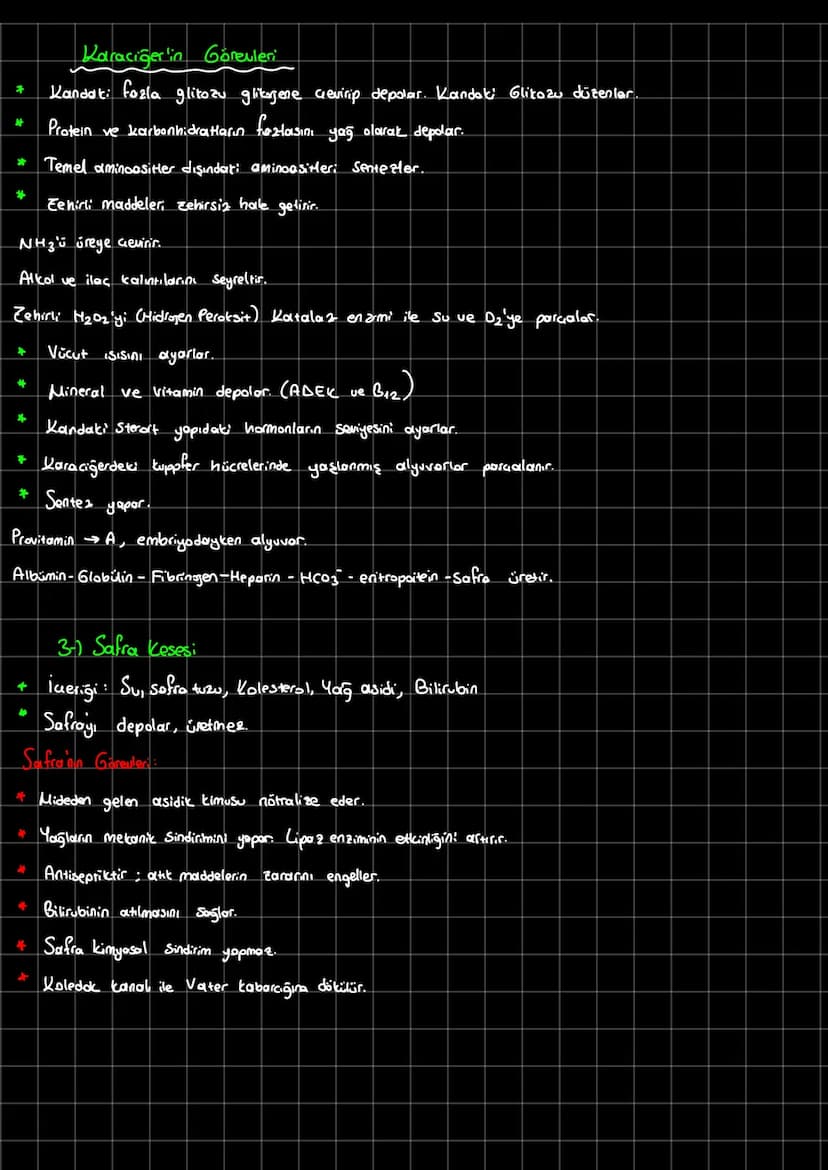 Karaciğer'in Görevleri
* Kandaki fazla glikozu glikojene çevirip depolar. Kandaki Glikozu düzenler.
* Protein ve karbonhidratların fazlasını yağ olarak depolar.
* Temel aminoasitler dışındaki aminoasitleri sentezler.
* Zehirli maddeleri zehirsiz hale getirir.
NH3'ü üreye çevirir.
Alkol ve ilaç kalıntılarını seyreltir.
Zehirli H2O2'yi (Hidrojen Peroksit) Katalaz enzimi ile su ve O2'ye parçalar.
* Vücut ısısını ayarlar.
* Mineral ve Vitamin depolar. (ADEK ve B12)
* Kandaki Steroit yapıdaki hormonların seviyesini ayarlar.
* Karaciğerdeki kuppfer hücrelerinde yaşlanmış alyuvarlar parçalanır.
* Sentez yapar.
Provitamin → A, embriyodayken alyuvar.
Albümin - Globülin - Fibrinojen - Heparin - HCO3⁻ - eritropoitein - Safra üretir.
3-) Safra Kesesi
* İçeriği: Su, safra tuzu, Kolesterol, Yağ asidi, Bilirubin
* Safrayı depolar, üretmez.
Safra'nın Görevleri:
* Mideden gelen asidik kimusu nötralize eder.
* Yağların mekanik Sindirimini yapar. Lipaz enziminin etkinliğini artırır.
* Antiseptiktir; atık maddelerin zararını engeller.
* Bilirubinin atılmasını sağlar.
* Safra kimyasal sindirim yapmaz.
* Koledok kanal ile Vater kabarcığına dökülür.